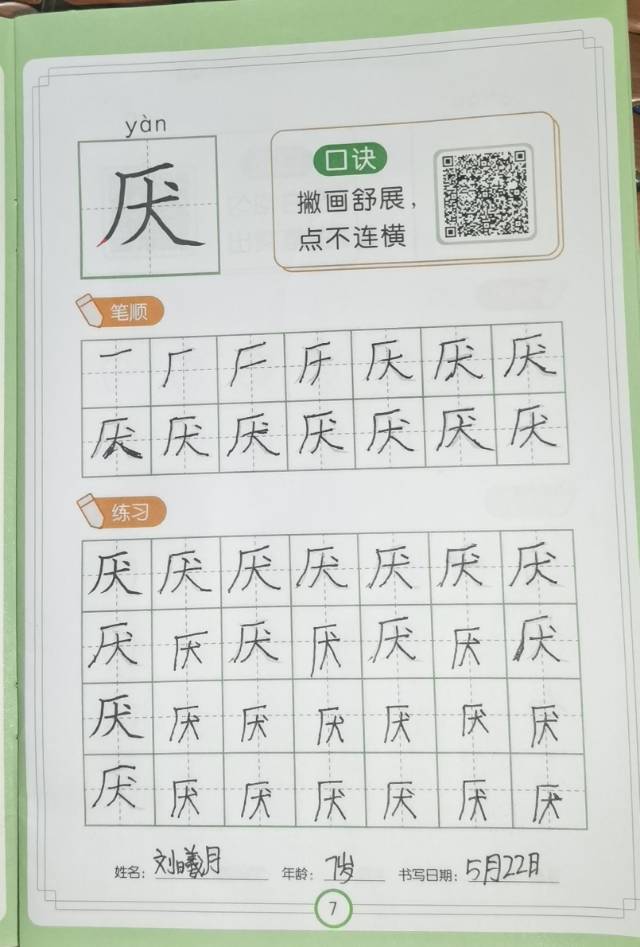 yàn
厌
口诀
撇画舒展，
点不连横
笔顺
一 厂 厌 厌
厌 厌 厌 厌 厌 厌 厌
练习
厌 厌 厌 厌 厌 厌 厌
厌 厌 厌 厌 厌 厌 厌
厌 厌 厌 厌 厌 厌 厌
厌 厌 厌 厌 厌 厌 厌
姓名：刘曦月 年龄：7岁 书写日期：5月22日
7